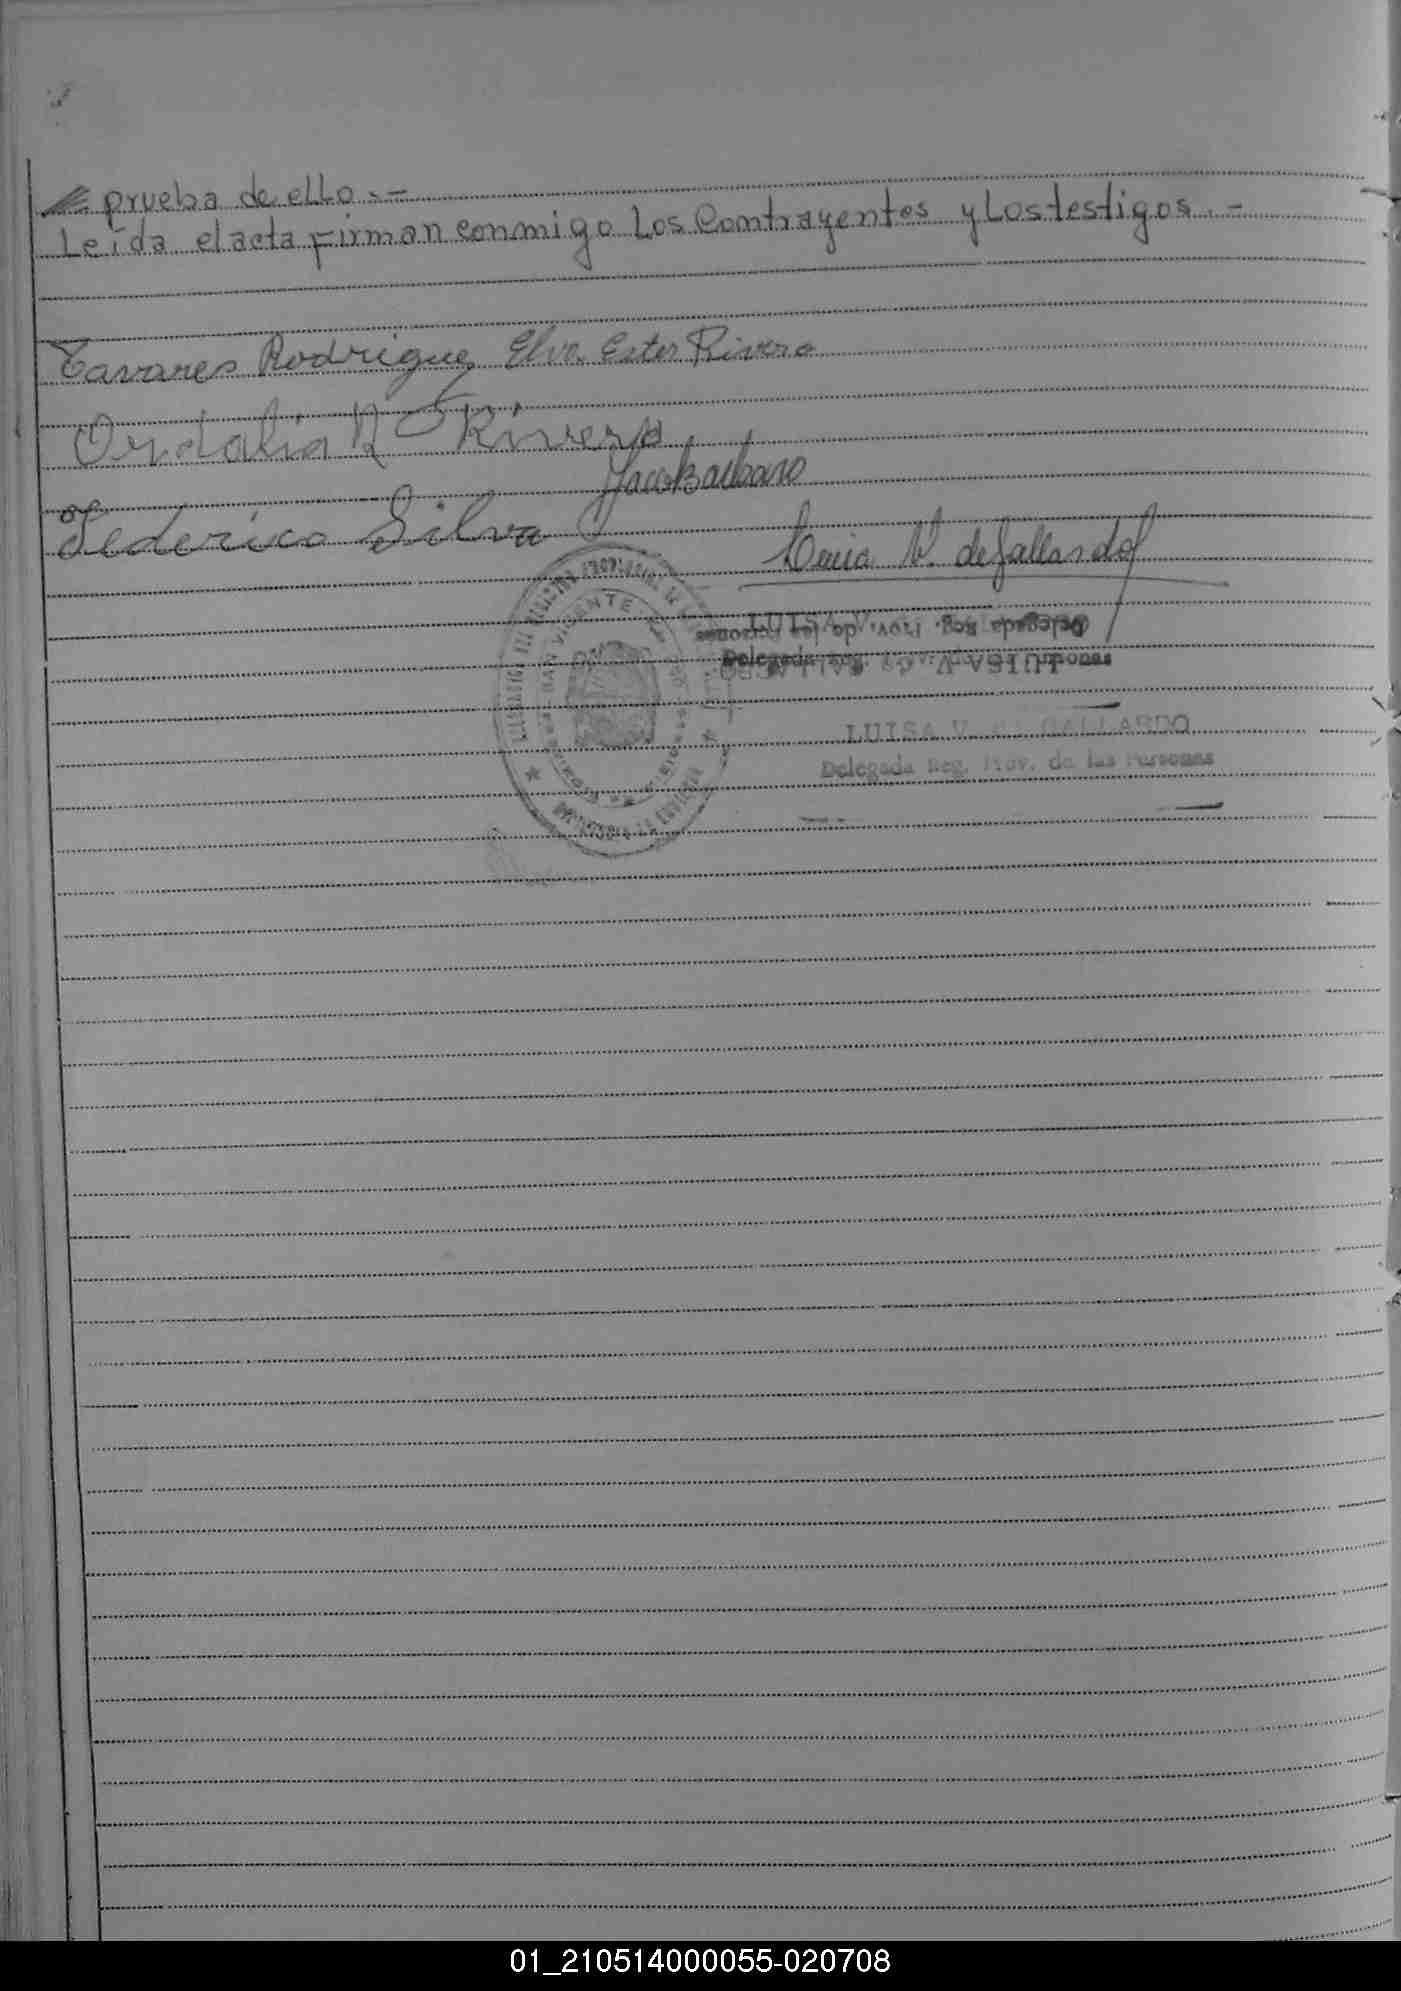 prueba de ello.-
Leída el acta firman conmigo Los Contrayentes y Los testigos.-
Tavares Rodriguez Elva Ester Rivero
Ordalia R Rivero
Jacobarbaro
Federico Silva
Luisa V. de Gallardo
SAN VICENTE
Delegada Reg. Prov. de las Personas
LUISA V. DE GALLARDO
Delegada Reg. Prov. de las Personas
01_210514000055-020708